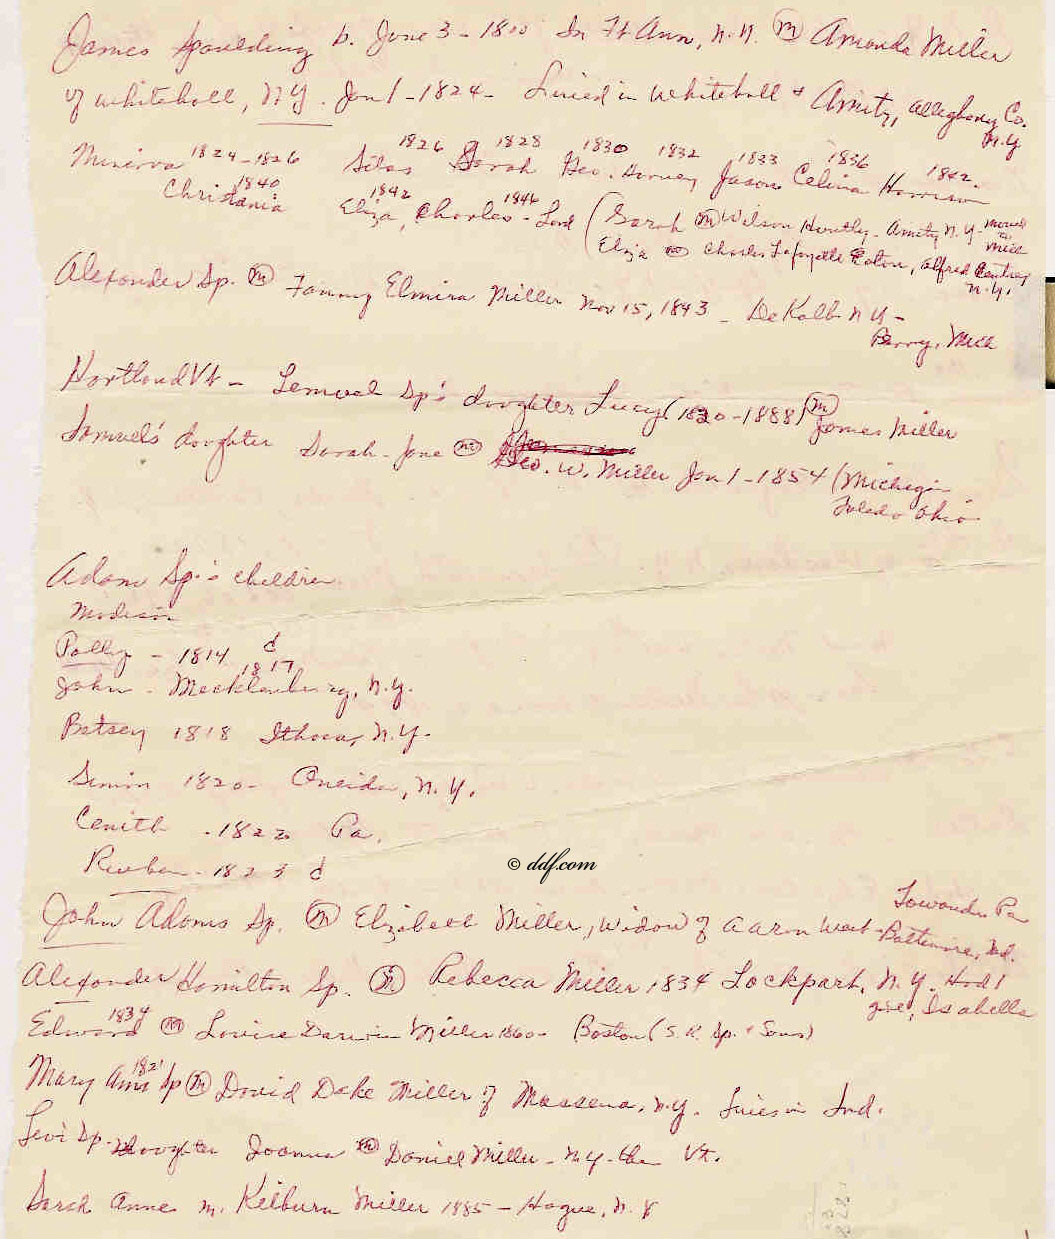 James Spaulding b. June 3 - 1800 In Ft Ann, N.Y. (m) Amanda Miller
of Whitehall, NY. Jan 1 - 1824 - Lived in Whitehall & Amity, Allegheny Co. N.Y.
Minerva 1824-1826 Silas 1826 Sarah 1828 Geo. Harvey 1830 1832 Jason 1833 Celina 1836 Harrison 1842.
Christania 1840 Eliza, 1842 Charles - 1846 (Sarah (m) Wilson Huntly - Amity N.Y. moved to Mich
Eliza (m) Charles Lafayette Eaton, Alfred Center N.Y.
Alexander Sp. (m) Fanny Elmira Miller Nov 15, 1843 - DeKalb N.Y -
Perry, Mich
Hartland Vt - Lemuel Sp's daughter Lucy (1820-1888) (m) James Miller
Samuel's daughter Sarah-Jane (m) Geo. W. Miller Jan 1 - 1854 (Michigan
Toledo Ohio
Adam Sp.'s children
Madison
Polly - 1814 d
John - 1817 Mecklenburg, N.Y.
Betsey 1818 Ithaca, N.Y.
1820 - Oneida, N.Y.
Cenith - 1822 Pa.
Reuben - 1823 d
© ddf.com
John Adams Sp. (m) Elizabeth Miller, widow of Aaron West - Baltimore, Md.
Towanda Pa
Alexander Hamilton Sp. (m) Rebecca Miller 1834 Lockport, N.Y. Had 1
girl, Isabella
Edward 1834 (m) Louise Miller 1860 - Boston (S.R. Sp. & Sons)
Mary Ann 1821 Sp (m) David Deke Miller of Massena, N.Y. Lives in Ind.
Levi Sp. daughter Joanna (m) Daniel Miller - N.Y. - then Vt.
Sarah Anne m. Kilburn Miller 1885 - Hague, N.Y